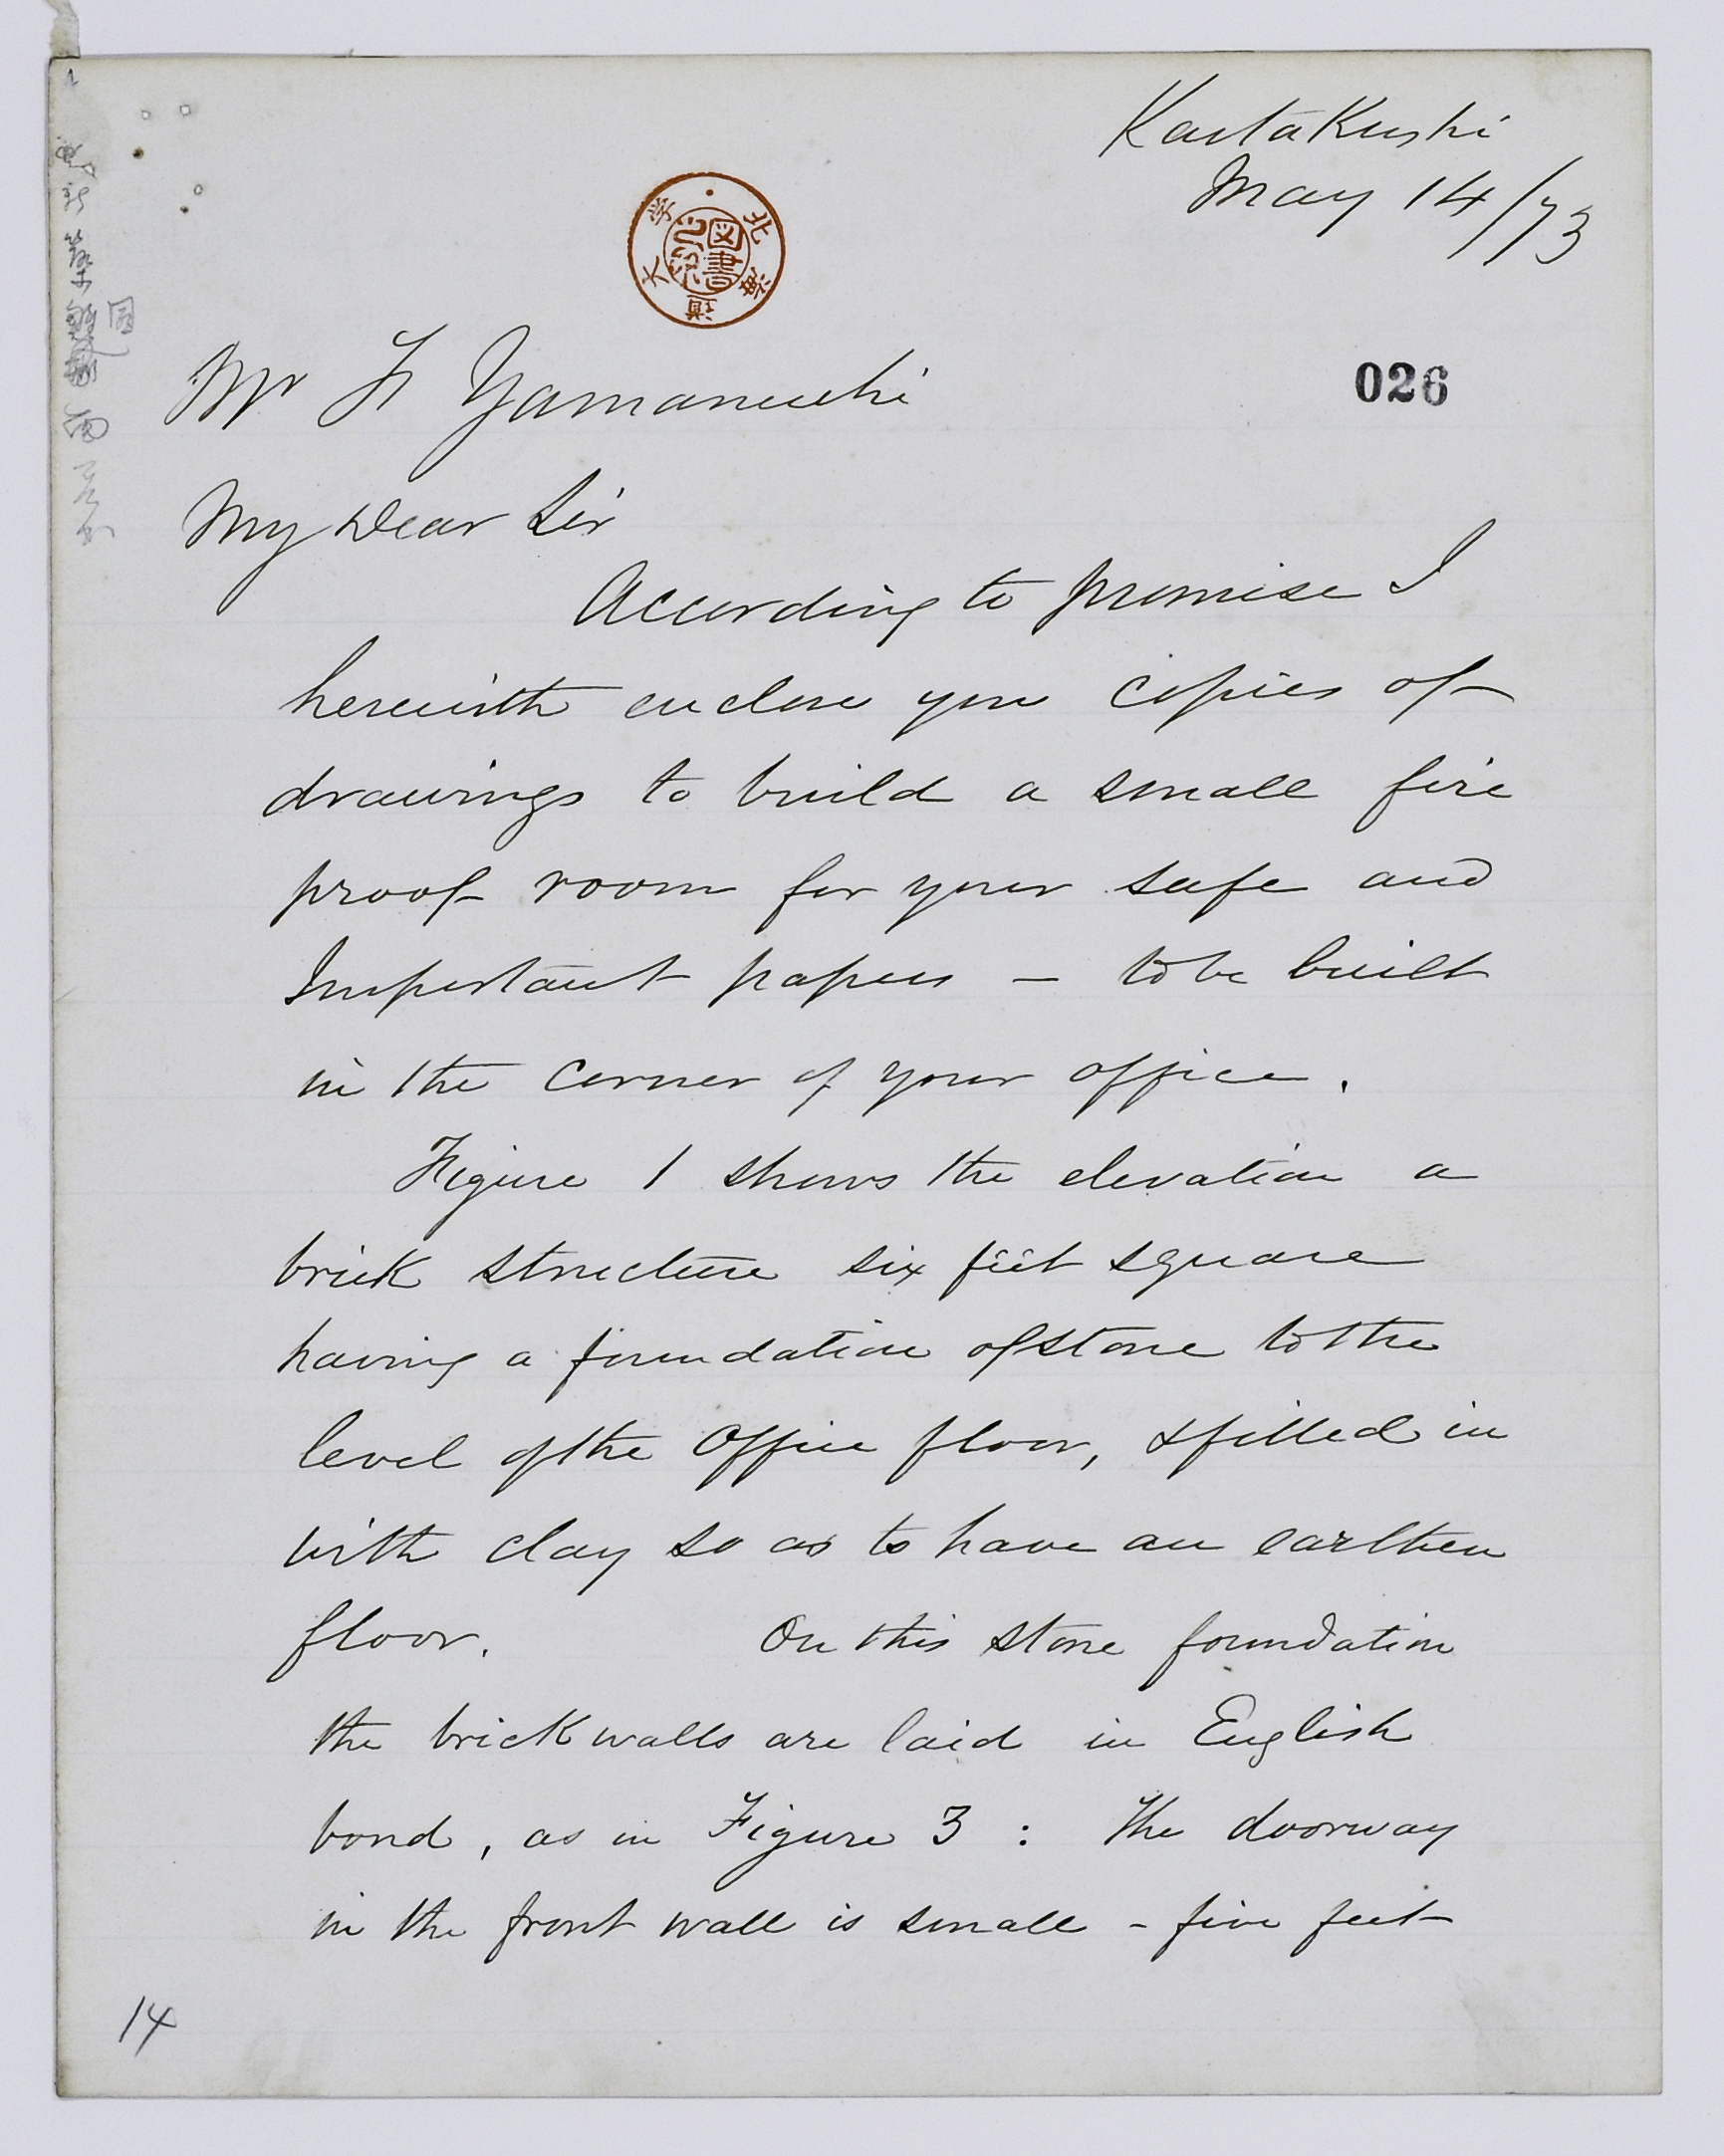 KaitaKushi
May 14/73
北海道大学
図書
026
Mr F Yamanuchi
My Dear Sir
According to promise I
herewith enclose you copies of
drawings to build a small fire
proof room for your safe and
Important papers – to be built
in the corner of your office.
Figure 1 shows the elevation a
brick structure six feet square
having a foundation of stone to the
level of the Office floor, & filled in
with clay so as to have an earthen
floor. On this stone foundation
the brick walls are laid in English
bond, as in Figure 3 : The doorway
in the front wall is small – five feet
14